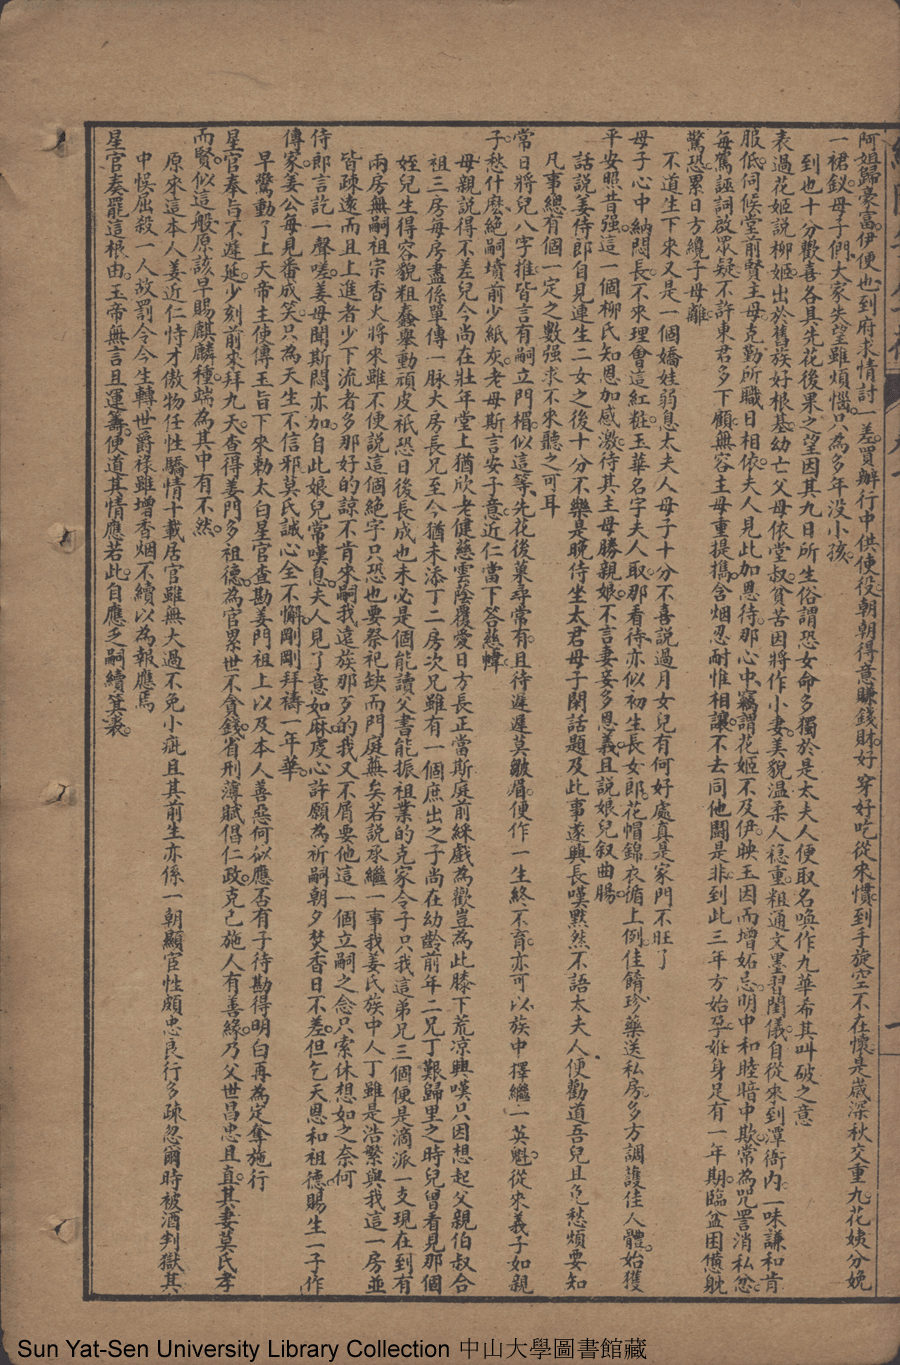 阿姐歸豪富伊便也到府求情討一差買辦行中供使役朝朝得意賺錢財好穿好吃從來慣到手旋空不在懷是歲深秋交重九花姨分娩
一裙釵母子們大家失望雖煩惱只為多年没小孩
到也十分歡喜各具先花後果之望因其九日所生俗謂恐女命多獨於是太夫人便取名喚作九華希其叫破之意
表過花姬説柳姬出於舊族好根基幼亡父母依堂叔貧苦因將作小妻美貌温柔人穏重粗通文墨習閨儀自從來到潭衙内一味謙和肯
服低伺候堂前賢主母克勤所職日相依夫人見此加恩待那心中竊謂花姬不及伊映玉因而增妬忌明中和睦暗中欺常為咒詈消私忿
每罵誣詞啟眾疑不許東君多下顧無容主母重提擕含烟忍耐惟相讓不去同他闘是非到此三年方始孕姙身足有一年期臨盆困憊躭
驚恐累日方纔子母離
不道生下來又是一個嬌娃弱息太夫人母子十分不喜説過月女兒有何好處真是家門不旺了
母子心中納悶長不來理會這紅粧玉華名字夫人取那看待亦似初生長女郎花帽錦衣循上例佳餚珍藥送私房多方調護佳人體始獲
平安照昔强這一個柳氏知恩加感激待其主母勝親娘不言妻妾多恩義且説娘兒叙曲腸
話説姜侍郎自見連生二女之後十分不樂是晚侍坐太君母子閑話題及此事遂興長嘆黙然不語太夫人便勸道吾兒且免愁煩要知
凡事總有個一定之數强求不來聽之可耳
常日將兒八字推皆言有嗣立門楣似這等先花後菓尋常有且待遲遲莫皺眉便作一生終不育亦可以族中擇繼一英魁從來義子如親
子愁什麽絶嗣墳前少紙灰老母斯言安子意近仁當下答慈幃
母親説得不差兒今尚在壯年堂上猶欣老健慈雲蔭覆愛日方長正當斯庭前綵戲為歡豈為此膝下荒凉興嘆只因想起父親伯叔合
祖三房每房盡係單傳一脉大房長兄至今猶未添丁二房次兄雖有一個庶出之子尚在幼齡前年二兄丁艱歸里之時兒曾看見那個
姪兒生得容貌粗蠢舉動頑皮祇恐日後長成也未必是個能讀父書能振祖業的克家令子只我這弟兄三個便是滴派一支現在到有
兩房無嗣祖宗香火將來雖不便説這個絶字只恐也要祭祀缺而門庭蕪矣若説承繼一事我姜氏族中人丁雖是浩繁與我這一房並
皆疎遠而且上進者少下流者多那好的諒不肯來嗣我遠族那歹的我又不屑要他這一個立嗣之念只索休想如之奈何
侍郎言訖一聲嗟姜母聞斯悶亦加自此娘兒常嘆息夫人見了意如麻虔心許願為祈嗣朝夕焚香日不差但乞天恩和祖德賜生一子作
傳家姜公每見番成笑只為天生不信邪莫氏誠心全不懈剛剛拜禱一年華
早驚動了上天帝主使傳玉旨下來勅太白星官查勘姜門祖上以及本人善惡何似應否有子待勘得明白再為定奪施行
星官奉旨不遲延少刻前來拜九天查得姜門多祖德為官累世不貪錢省刑薄賦倡仁政克己施人有善緣乃父世昌忠且直其妻莫氏孝
而賢似這般原該早賜麒麟種端為其中有不然
原來這本人姜近仁恃才傲物任性驕情十載居官雖無大過不免小疵且其前生亦係一朝顯宦性頗忠良行多疎忽爾時被酒判獄其
中悮屈殺一人故罰令今生轉世爵祿雖增香烟不續以為報應焉
星官奏罷這根由玉帝無言且運籌便道其情應若此自應乏嗣續箕裘
Sun Yat-Sen University Library Collection 中山大學圖書館藏